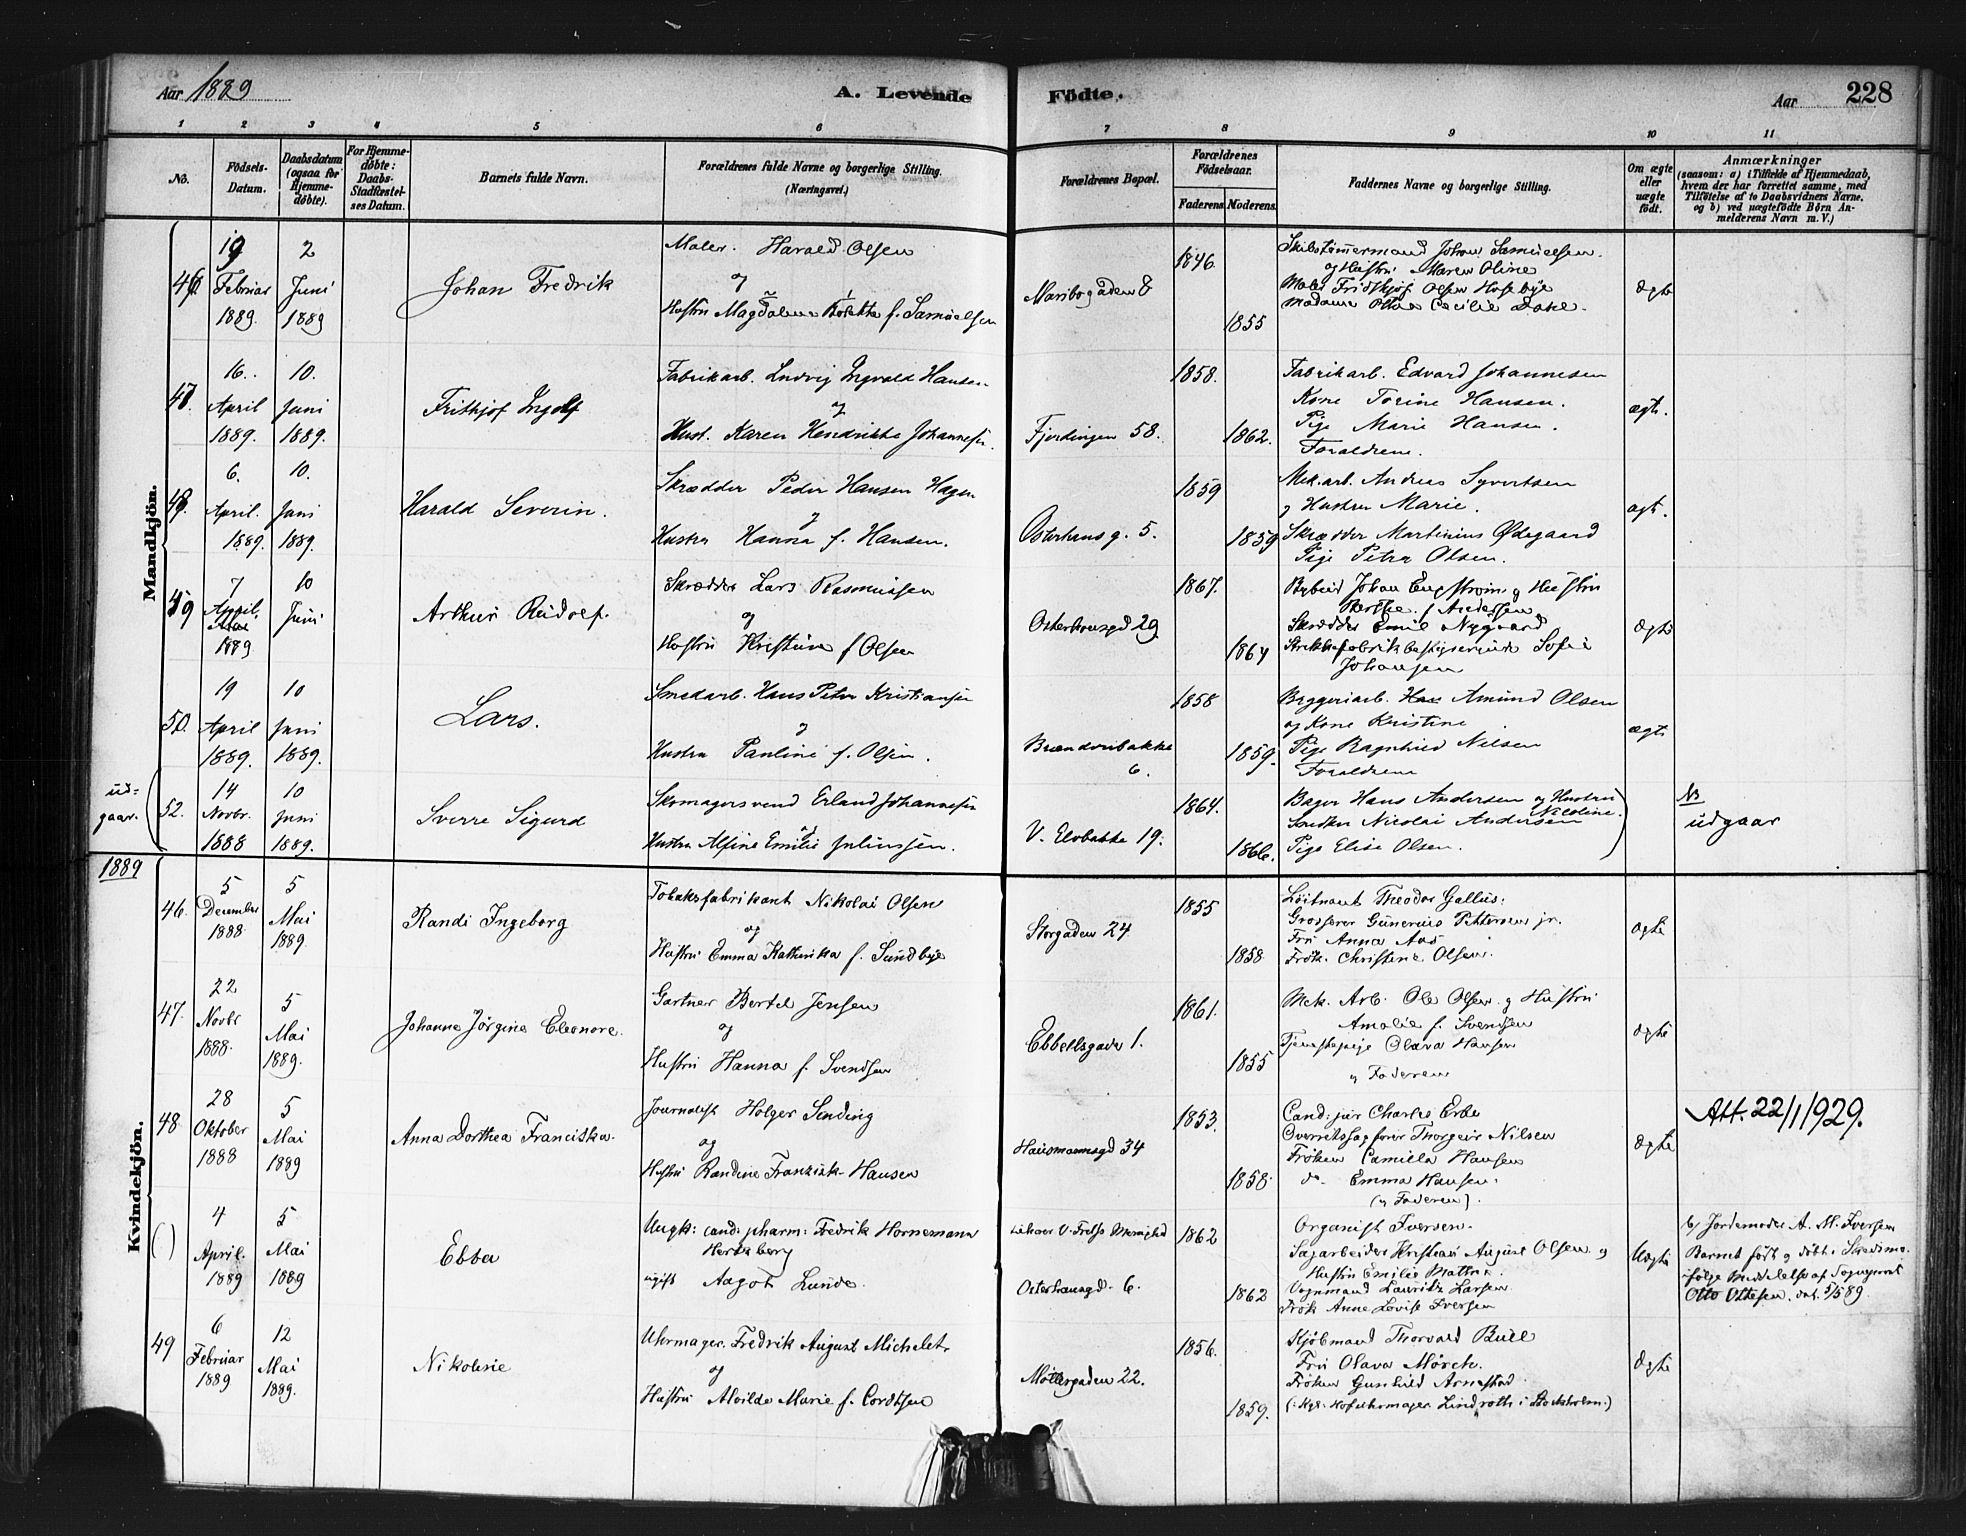 Aar 1889 A. Levende Födte. Aar 228
1 2 3 4 5 6 7 8 9 10 11
No. Födsels-Datum. Daabsdatum (ogsaa for Hjemmedöbte). For Hjemmedöbte: Daabs-Stadfæstelses Datum. Barnets fulde Navn. Forældrenes fulde Navne og borgerlige Stilling. (Næringsvei.) Forældrenes Bopæl. Forældrenes Födselsaar. Faderens Moderens Faddernes Navne og borgerlige Stilling. Om ægte eller uægte födt. Anmærkninger (saasom: a) i Tilfælde af Hjemmedaab, hvem der har forrettet samme, med Tilföielse af to Daabsvidners Navne, og b) ved uægtefödte Börn Anmelderens Navn m. V.)
Mandkjön.
46. 19 Februar 1889. 2 Juni 1889
Johan Fredrik
Maler. Harald Olsen
og
Hustru Magdalene Bolette f. Samuelsen
Maribogaden 8
1846.
1855
Skibstømmermand Johan Samuelsen.
og Hustru Maren Oline
Maler Fridthjof Olsen Hosebye
Madame Olava Cecilie Dahl.
ægte
47. 16. April 1889. 10. Juni 1889.
Frithjof Ingolf
Fabrikarb. Ludvig Ingvald Hansen
og
Hust. Karen Hendrikke Johannesen.
Fjerdingen 58.
1858.
1862.
Fabrikarb. Edvard Johannesen
Kone Torine Hansen.
Pige Marie Hansen.
Forældrene.
ægte.
48. 6. April. 1889. 10. Juni 1889.
Harald Severin.
Skrædder Peder Hansen Hagen
og
Hustru Hanna f. Hansen.
Osterhausg. 5.
1859
1859
Mek.arb. Andreas Syvertsen
og Hustru Marie.
Skrædder Martinius Ødegaard
Pige Petra Olsen.
ægte.
49 7 April 1889 10 Juni
Arthur Rudolf.
Skrædder Lars Rasmussen
og
Hustru Kristine f Olsen
Osterhausgd 29
1867.
1864
Bybud Johan Engstrøm og Hustru
Berthe f. Andersen
Skrædder Emil Nygaard
Strikkefabrikbestyrerinde Sofie
Johansen
ægte
50. 19 April 1889. 10 Juni 1889.
Lars.
Smedarb. Hans Peter Kristiansen
og
Hustru Pauline f. Olsen.
Brændvibakke
6.
1858
1859.
Bryggeriarb. Amund Olsen
og Kone Kristine
Pige Ragnhild Nilsen
Forældrene
ægte
ud-
gaar.
52. 14 Novbr. 1888 10 Juni 1889.
Sverre Sigurd
Skomagersvend Erland Johannesen
Hustru Alfine Emilie Juliussen.
V. Elvbakke 19.
1864.
1866.
Bager Hans Andersen og Hustru
Nicoline.
Snedker Nicolai Andersen
Pige Elise Olsen.
NB
udgaar
1889
Kvindekjön.
46. 5 December 1888 5 Mai 1889.
Randi Ingeborg
Tobaksfabrikant Nikolai Olsen
og
Hustru Emma Katherika f. Sundbye
Storgaden 24
1855
1858
Løitnant Theodor Gallus:
Grosserer Gunerius Pettersen jr.
Fru Anna Aas
Frøk. Christine Olsen.
ægte
47. 22 Novbr 1888. 5 Mai 1889.
Johanne Jörgine Eleonore.
Gartner Bertel Jensen
og
Hustru Hanna f. Svendsen
Ebbellsgade 1.
1861.
1855
Mek. Arb. Ole Olsen og Hustru
Amalie f. Svendsen
Tjenestepige Olava Hansen
og Faderen
ægte
48. 28 Oktober 1888 5 Mai 1889
Anna Dorthea Franciska.
Journalist Holger Sinding
og
Hustru Randine Franzisk. Hansen
Hausmannsgd 34
1853.
1858
Cand: jur Charles Erbe
Overretssagfører Thorgeir Nilsen
Frøken Camilla Hansen
do. Emma Hansen.
(og Faderen).
ægte
Att. 22/1/929.
( ) 4 April. 1889 5 Mai 1889
Ebba
Ungk: cand: pharm: Fredrik Hornemann
Hertzberg
ugift Aagot Lunde.
V. Frelss Menighed
Osterhausgd. 6.
1862
1862
Organist Iversen.
Sagarbeider Kristian August Olsen og
Hustru Emilie
Vognmand Lauritz Larsen
Frøk Anne Lovise Iversen
Uægte
b) Jordemoder A. M. Iversen
Barnet født og døbt i Skedsmo.
ifølge Meddelelse af Sogneprest
Otto Ottesen, dat. 5/5 89.
49 6 Februar 1889 12 Mai 1889.
Nikoline
Uhrmager Fredrik August Michelet
og
Hustru Alvilde Marie f. Cordtsen
Møllergaden 22.
1856.
1859.
Kjøbmand Thorvald Bull
Fru Olava Mørch.
Frøken Gunhild Arnestad
(: Kgl. Hofuhrmager Lindroth i Stockholm.)
ægte